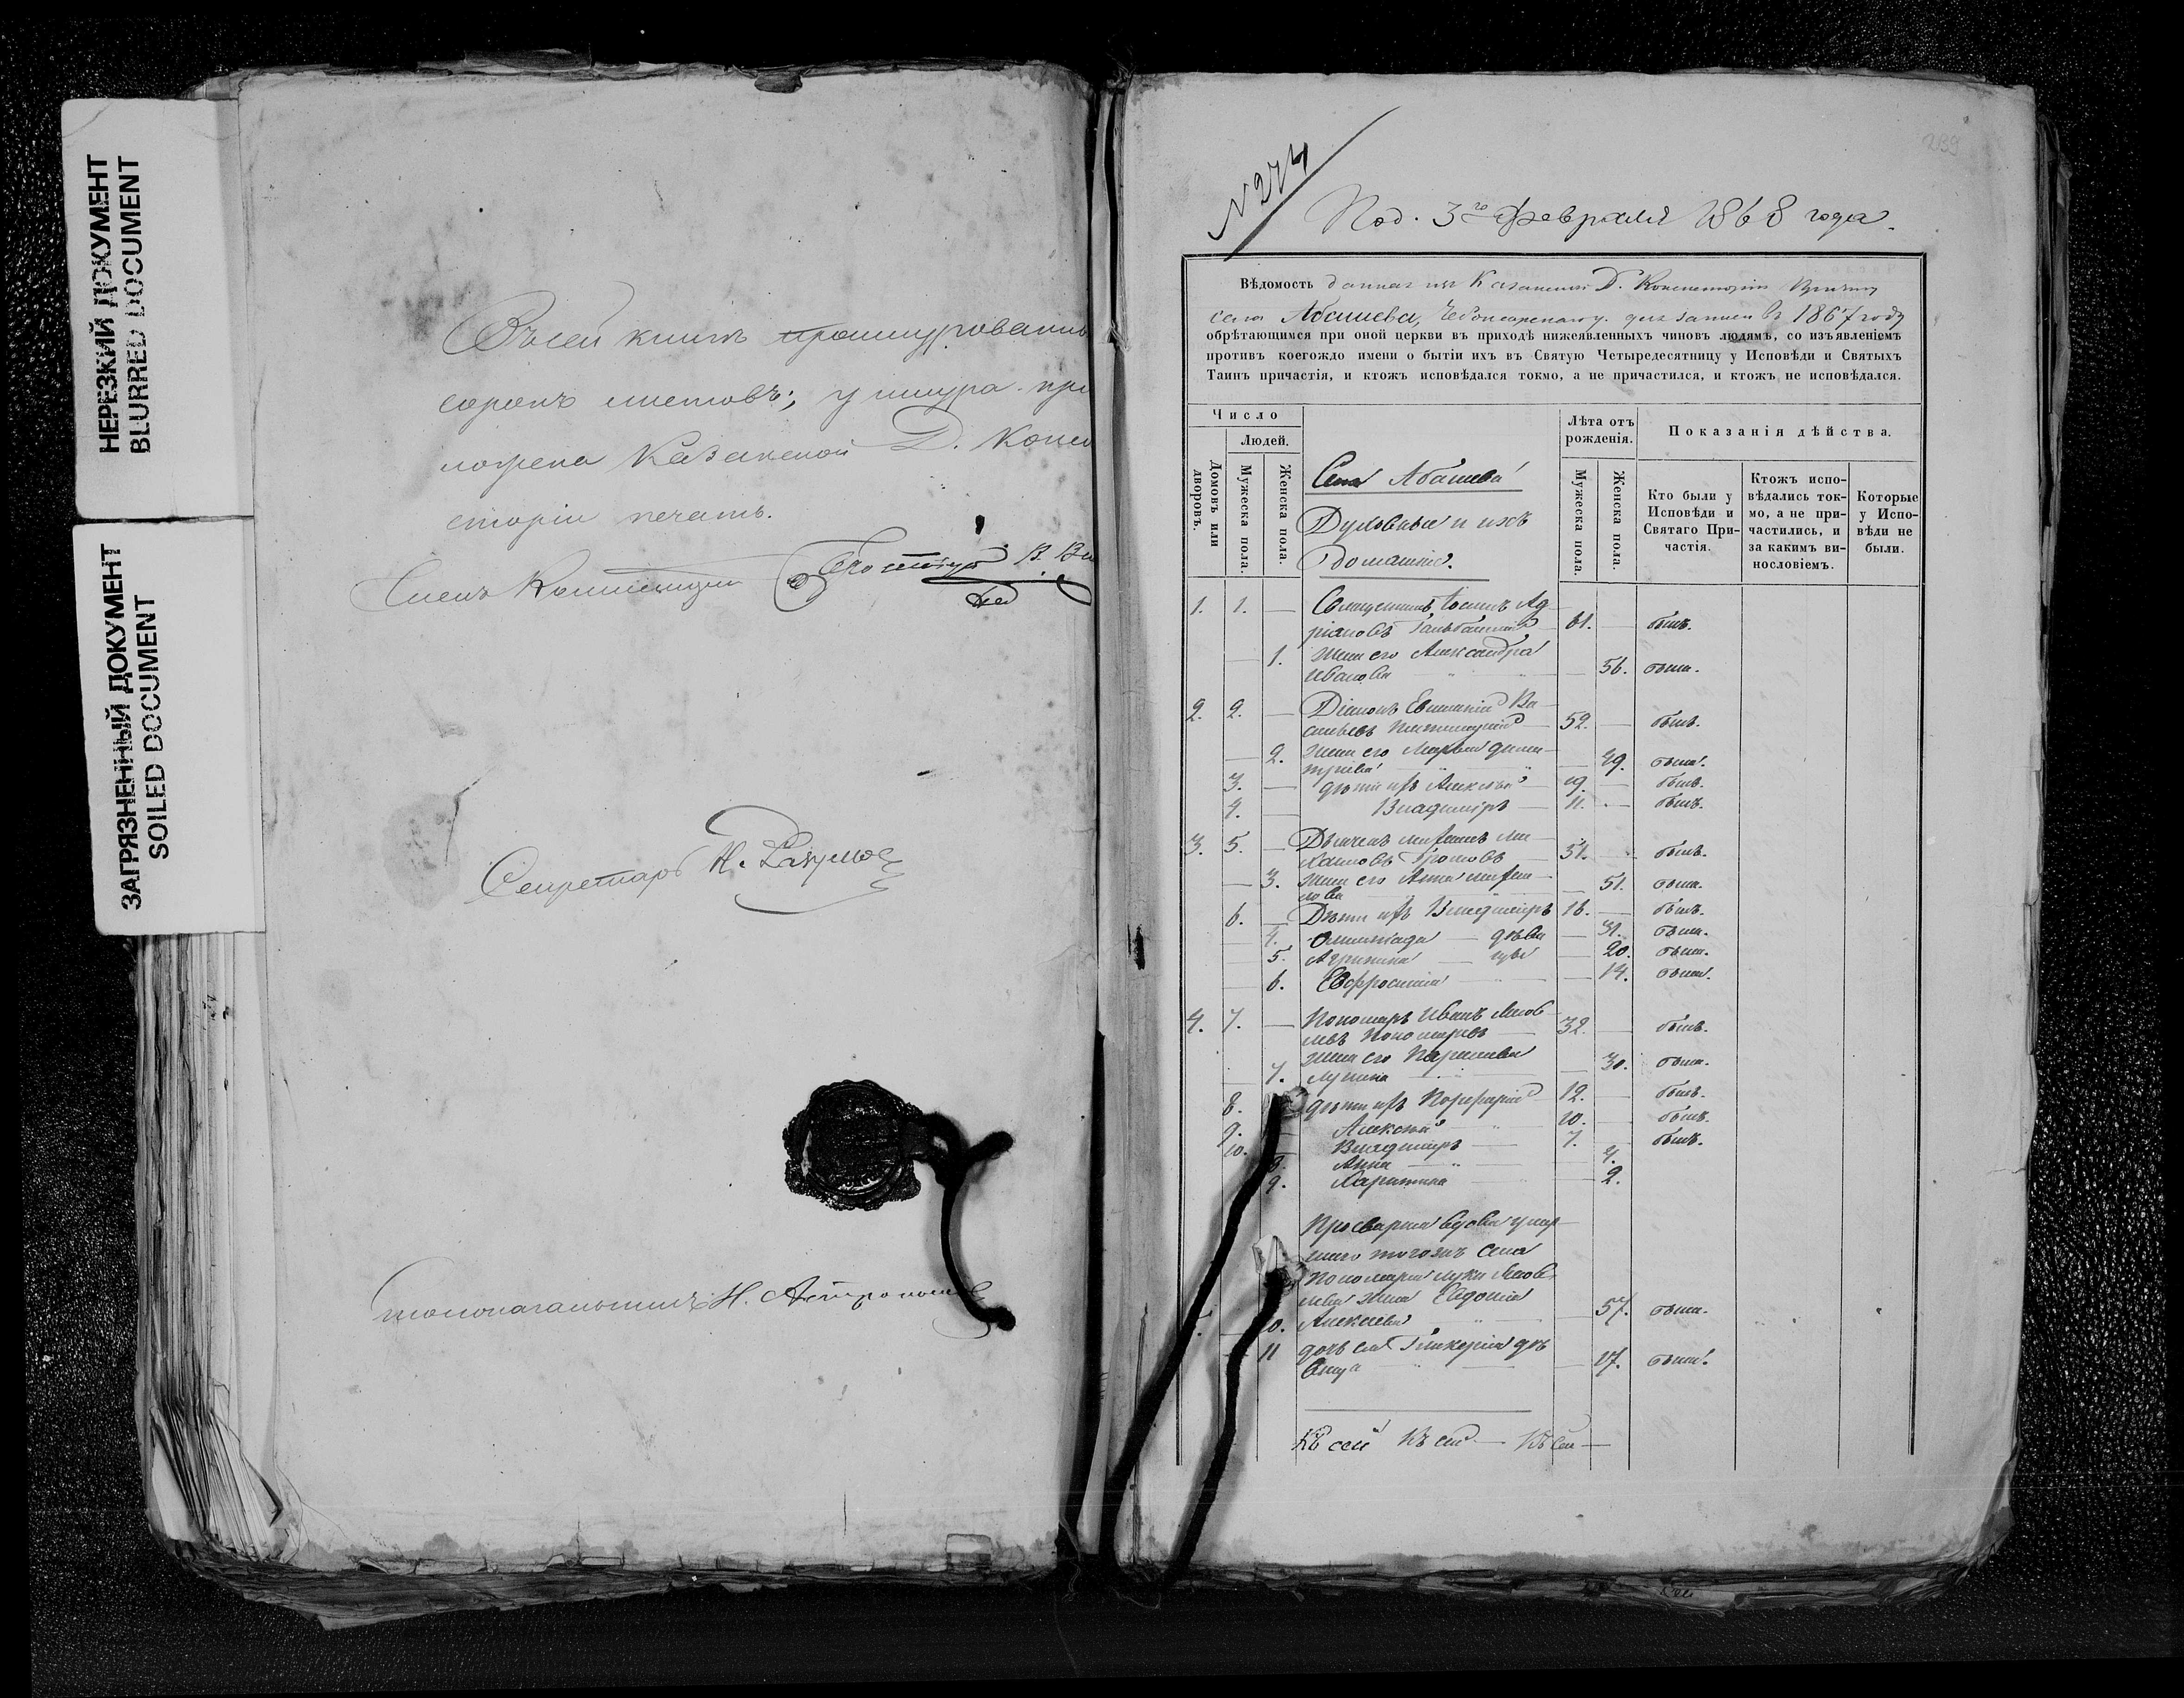 НЕРЕЗКИЙ ДОКУМЕНТ
BLURRED DOCUMENT
ЗАГРЯЗНЕННЫЙ ДОКУМЕНТ
SOILED DOCUMENT
Въ сей книгѣ прошнурованныхъ
сорокъ листовъ; у шнура при
ложена Казанской Д. Конси
сторіи печать.
Членъ Консисторіи Протоіерей В. Ви
Секретарь Н. Разумов
Столоначальникъ Н. Астрономов
239
№ 274
Под. 3го Февраля 1868 года.
Вѣдомость данная изъ Казанской Д. Консисторіи Причту
села Абашева, Чебоксарскаго у. для записи въ 1867 году
обрѣтающимся при оной церкви въ приходѣ нижеявленныхъ чиновъ людямъ, со изъявленіемъ
противъ коегождо имени о бытіи ихъ въ Святую Четыредесятницу у Исповѣди и Святыхъ
Таинъ причастія, и ктожъ исповѣдался токмо, а не причастился, и ктожъ не исповѣдался.
Число
Людей.
Домовъ или дворовъ.
Мужеска пола.
Женска пола.
Села Абашева
Духовные и ихъ
домашніе.
Лѣта отъ рожденія.
Мужеска пола.
Женска пола.
Показанія дѣйства.
Кто были у Исповѣди и Святаго Причастія.
Ктожъ исповѣдались токмо, а не причастились, и за какимъ винословіемъ.
Которые у Исповѣди не были.
1. 1. — Священникъ Іоаннъ Ад
ріановъ 61. — былъ.
— 1. Жена его Александра
Иванова — 56. была.
2. 2. — Діаконъ Евѳимій Ва
сильевъ 52. — былъ.
— 2. Жена его Марья Дими
тріева — 49. была.
3. — дѣти ихъ Алексѣй 19. — былъ.
4. — Владиміръ 11. — былъ.
3. 5. — Дьячекъ Михаилъ Ми
хаиловъ Громовъ 51. — былъ.
— 3. Жена его Анна Михаи
лова — 51. была.
6. — Дѣти ихъ Владиміръ 16. — былъ.
4. Олимпіада — дѣвка — 31. была.
5. Агрипина — — 20. была.
— 6. Евфросинія — 14. была.
4. 7. — Пономарь Иванъ Яков
левъ Пономаревъ 32. — былъ.
Жена его Параскева
7. Лукина — 30. была.
8. дѣти ихъ Порфирій 12. — былъ.
9. Алексѣй 10. — былъ.
10. Владиміръ 7. — былъ.
8. Анна — 4.
9. Харитина — 2.
Просвирня вдова умер
шаго тогожъ села
пономаря Луки Яков
лева жена Евдокія
10. Алексѣева — 57. была.
11 дочь ея Гликерія дѣ
вица — 17. была.
Къ сей Къ сей — Къ сей —